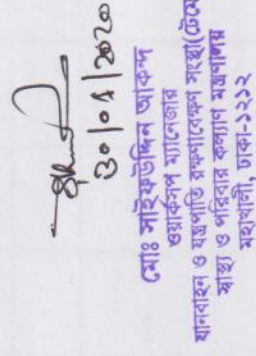 ৩০/০৭/২০২০
মোঃ সাইফউদ্দিন আকন্দ
ওয়ার্কসপ ম্যানেজার
যানবাহন ও যন্ত্রপাতি রক্ষণাবেক্ষণ সংস্থা(টেমো
স্বাস্থ্য ও পরিবার কল্যাণ মন্ত্রণালয়
মহাখালী, ঢাকা-১২১২